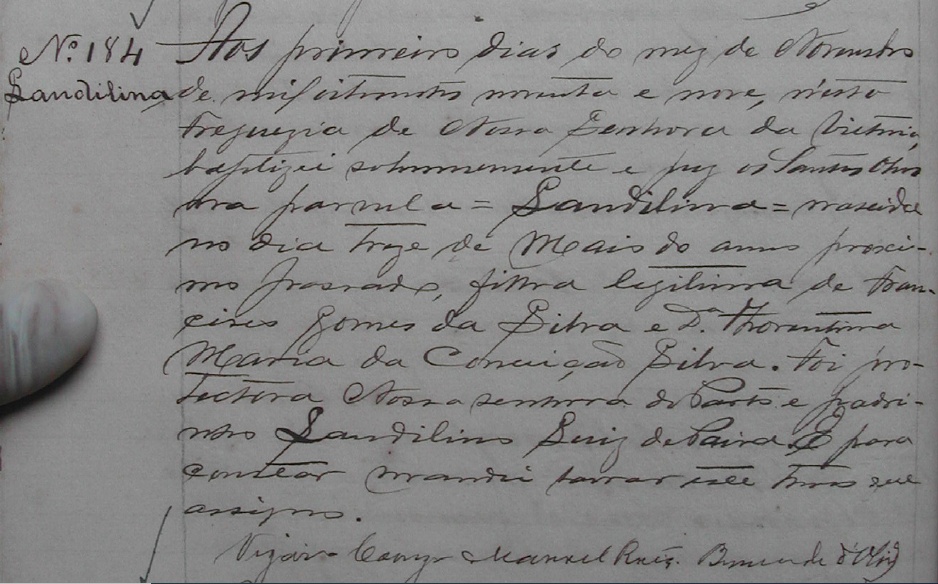 Nº 184 Aos primeiro dias do mez de Novembro
Laudilina de mil oitocentos noventa e nove, n'esta
freguezia de Nossa Senhora da Victoria
baptizei solemnemente e puz os Santos Oleos
na parvula = Laudilina = nascida
no dia treze de Maio do anno proxi-
mo passado, filha legitima de Fran-
cisco Gomes da Silva e D. Florentina
Maria da Conceição Silva. Foi pro-
tectora Nossa senhora do Parto e padri-
nho Laudilino Luiz de Paiva. E para
constar mandei lavrar este termo que
assigno.
Vigario Conego Manuel